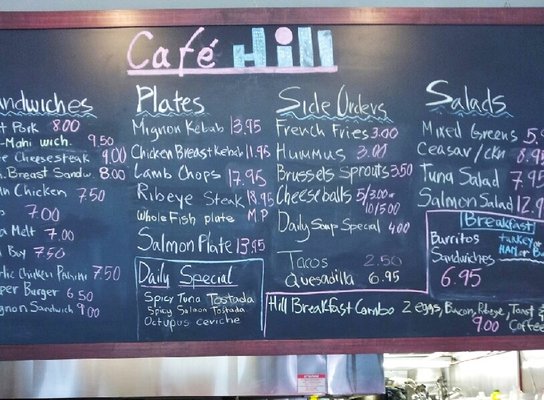 Café Hill
Sandwiches
Pork 8.00
Mahi wich. 9.50
Cheesesteak 9.00
Breast Sandw. 8.00
Chicken 7.50
7.00
Melt 7.00
Boy 7.50
Chicken Panini 7.50
Burger 6.50
Sandwich 9.00
Plates
Mignon Kebab 13.95
Chicken Breast Kebab 11.95
Lamb Chops 17.95
Ribeye Steak 18.95
Whole Fish plate M.P
Salmon Plate 13.95
Daily Special
Spicy Tuna Tostada
Spicy Salmon Tostada
Octupus ceviche
Side Orders
French Fries 3.00
Hummus 3.00
Brussels Sprouts 3.50
Cheeseballs 5/3.00 or
10/5.00
Daily Soup Special 4.00
Tacos 2.50
Quesadilla 6.95
Salads
Mixed Greens
Ceasar/ckn 8.95
Tuna Salad 7.95
Salmon Salad 12.9
Breakfast
Burritos Turkey or
Sandwiches Ham or
6.95
Hill Breakfast Combo 2 eggs, Bacon, Ribeye, Toast &
9.00 Coffee